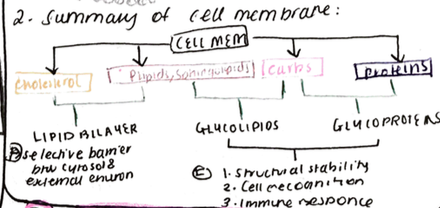 2. Summary of cell membrane:
CELL MEM
Cholesterol P.lipids, Sphingolipids Carbs Proteins
LIPID BILAYER GLYCOLIPIDS GLYCOPROTEINS
selective barrier
btw cytosol &
external environ
E 1. Structural stability
2. Cell recognition
3. Immune response